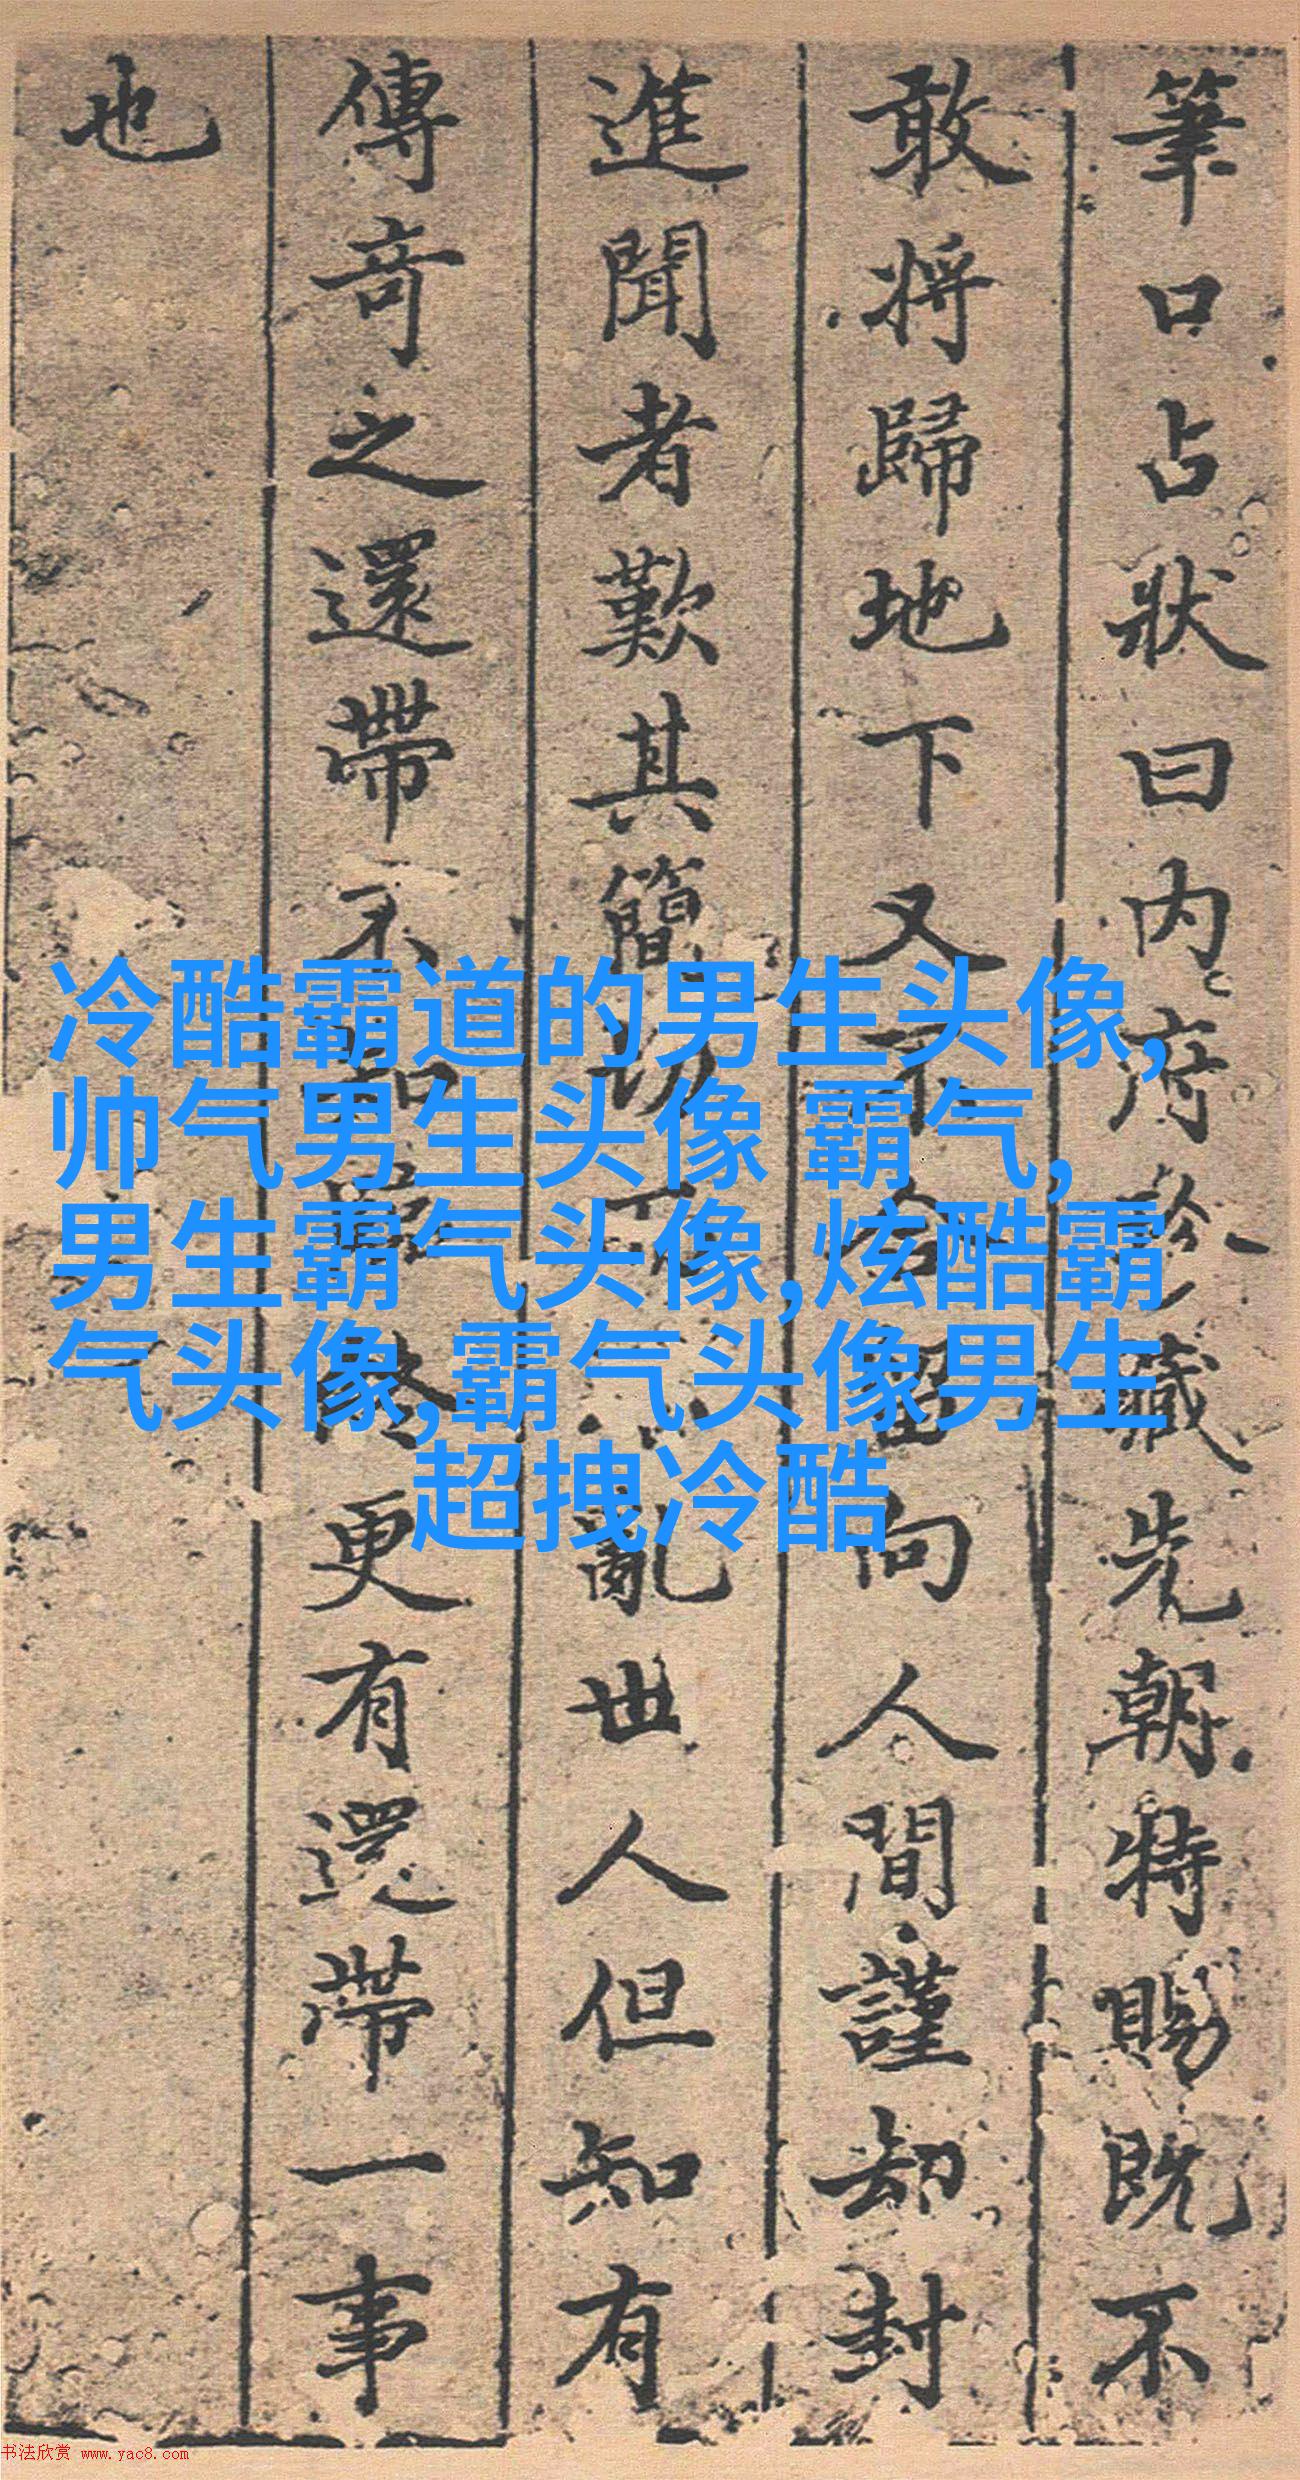 筆口占狀曰内府珍藏先朝特賜既不
敢將歸地下又不合留向人間謹却封
進聞者歎其簡切亂世人但知有
傳奇之還帶不知更有還帶一事
也
冷酷霸道的男生头像,
帅气男生头像 霸气,
男生霸气头像,炫酷霸
气头像,霸气头像男生
超拽冷酷
书法欣赏 www.yac8.com